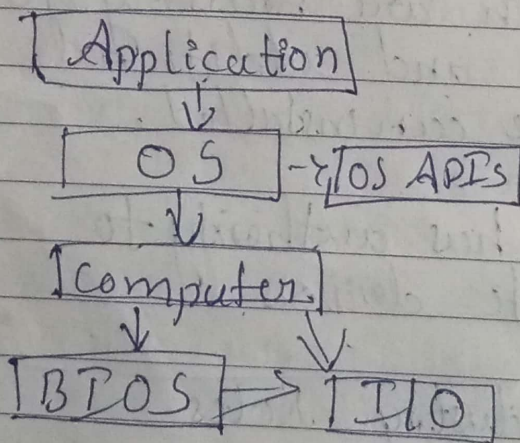 Application
OS OS APIs
Computer
BIOS I/O